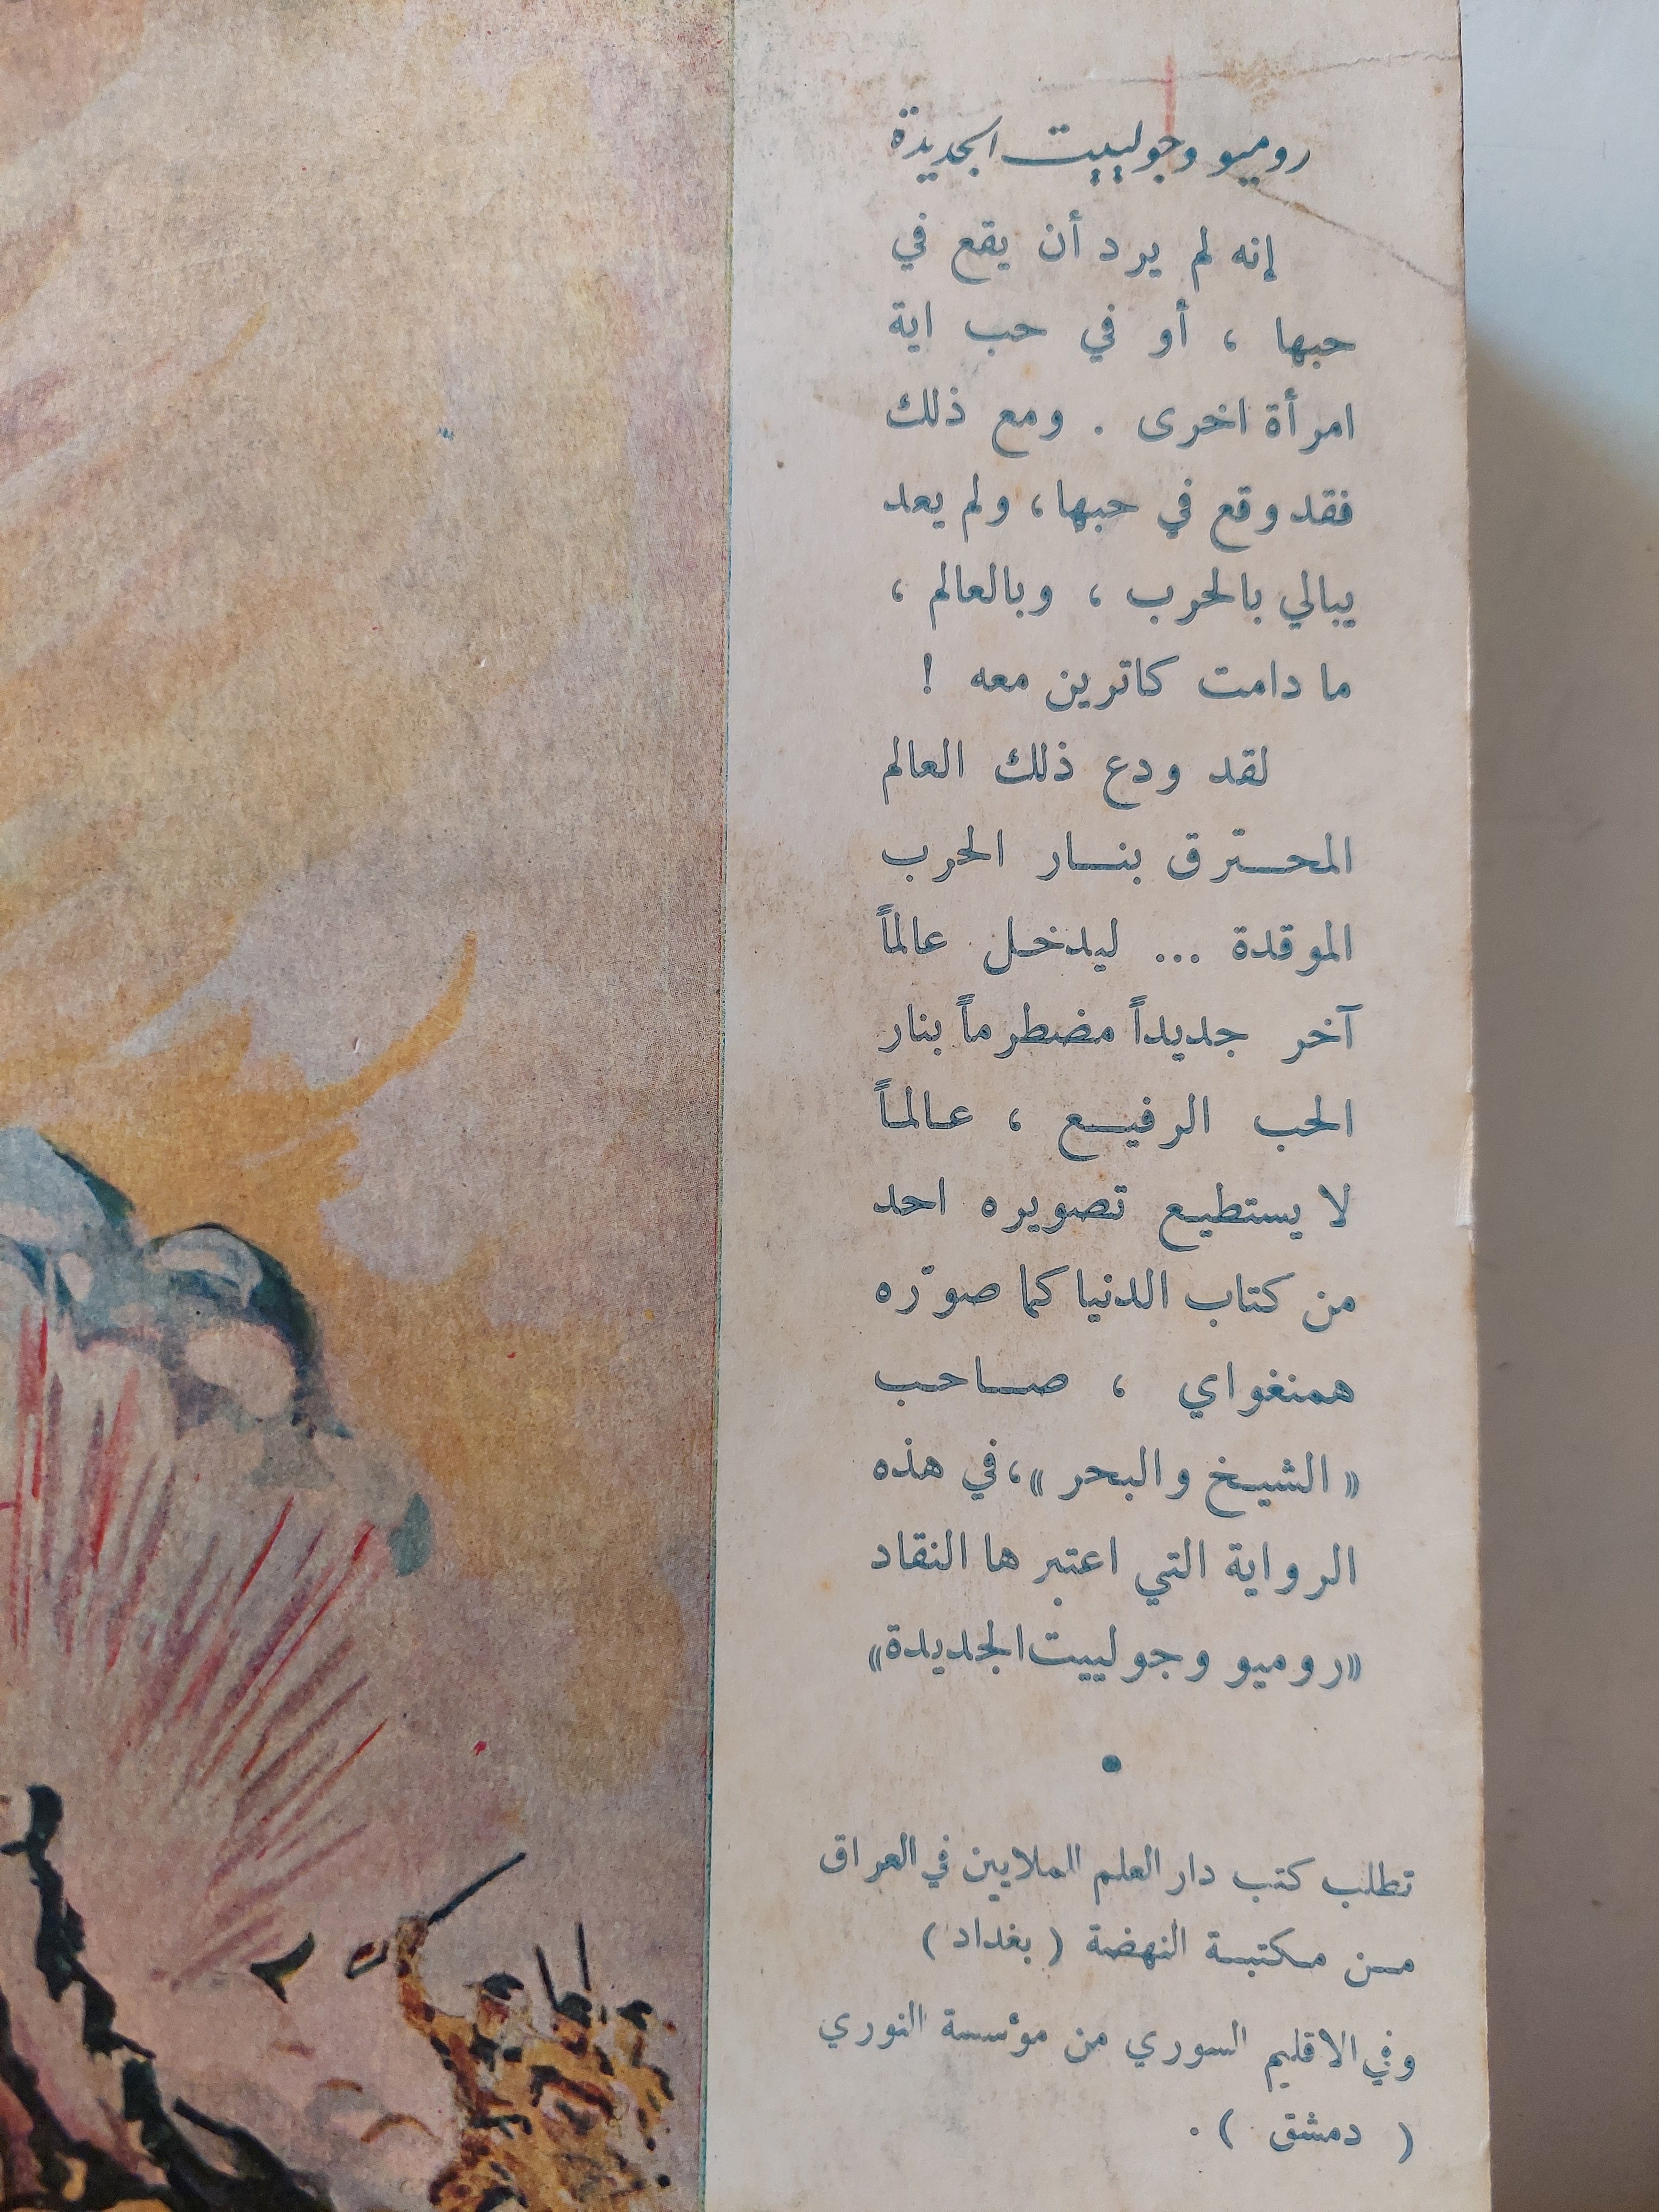 روميو وجولييت الجديدة
إنه لم يرد أن يقع في
حبها ، أو في حب اية
امرأة اخرى . ومع ذلك
فقد وقع في حبها، ولم يعد
يبالي بالحرب ، وبالعالم ،
ما دامت كاترين معه !
لقد ودع ذلك العالم
المحترق بنار الحرب
الموقدة ... ليدخل عالماً
آخر جديداً مضطرماً بنار
الحب الرفيع ، عالماً
لا يستطيع تصويره احد
من كتاب الدنيا كما صوّره
همنغواي ، صاحب
« الشيخ والبحر »، في هذه
الرواية التي اعتبرها النقاد
«روميو وجولييت الجديدة»
•
تطلب كتب دار العلم للملايين في العراق
من مكتبة النهضة ( بغداد )
وفي الاقليم السوري من مؤسسة النوري
( دمشق ) .